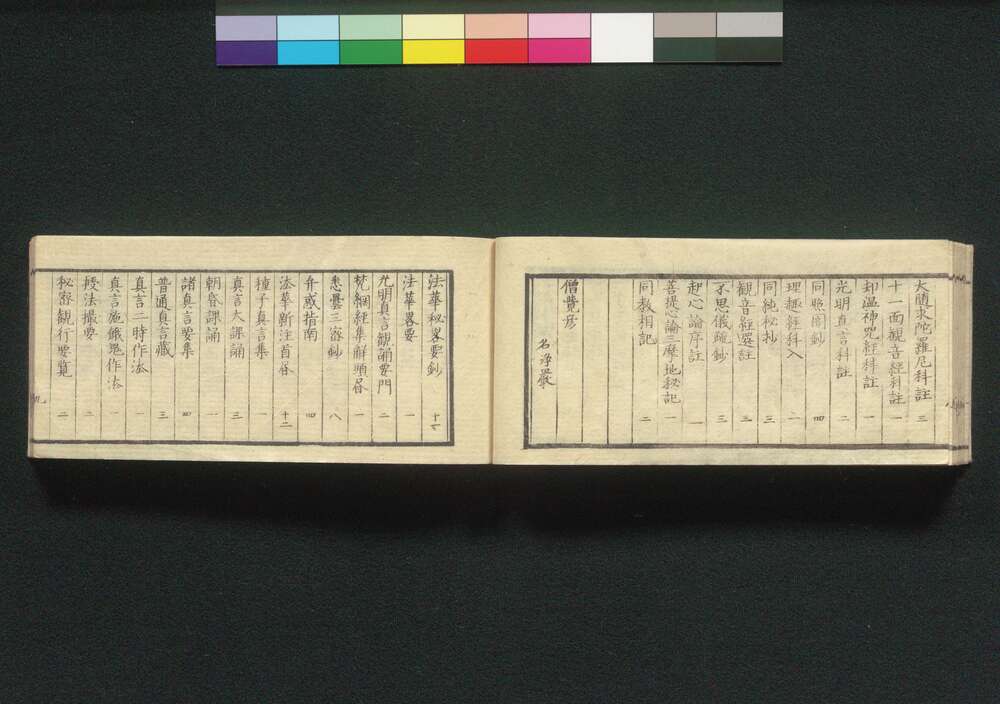 大随求陀羅尼科註 三
十一面観音経科註 一
却温神咒経科註 一
光明真言科註 二
同照闇鈔 四
理趣経科入 二
同純秘抄 三
観音経選註 二
不思儀疏鈔 三
起心論序註 一
菩提心論三摩地秘記
同教相記 二
僧覚彦
名浄厳
法華秘畧要鈔 十二
法華畧要 一
光明真言観誦要門 二
梵網経集解
悉曇三密鈔 八
弁惑指南 四
法華新注首 十二
種子真言集 一
真言大課誦 三
朝暮課誦 一
諸真言要集 四
普通真言蔵 三
真言二時作法 一
真言施餓鬼作法 一
授法撮要 二
秘密観行要覧 二